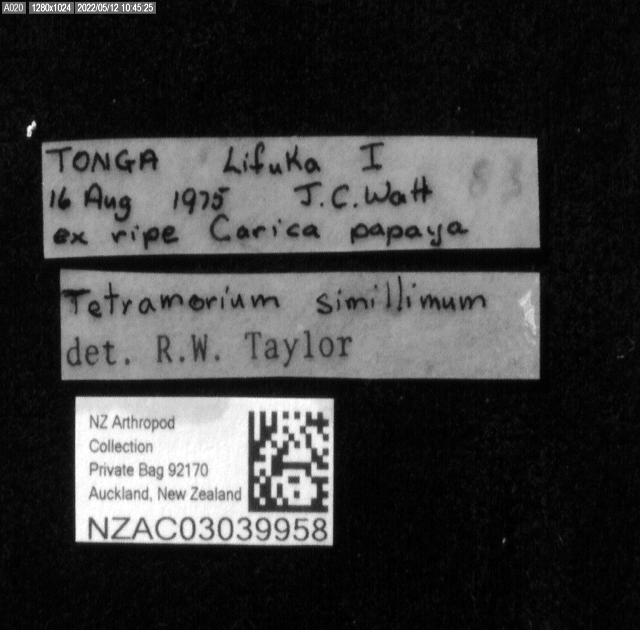 A020 1280x1024 2022/05/12 10:45:25
TONGA Lifuka I
16 Aug 1975 J.C. Watt
83
ex ripe Carica papaya
Tetramorium simillimum
det. R.W. Taylor
NZ Arthropod
Collection
Private Bag 92170
Auckland, New Zealand
NZAC03039958